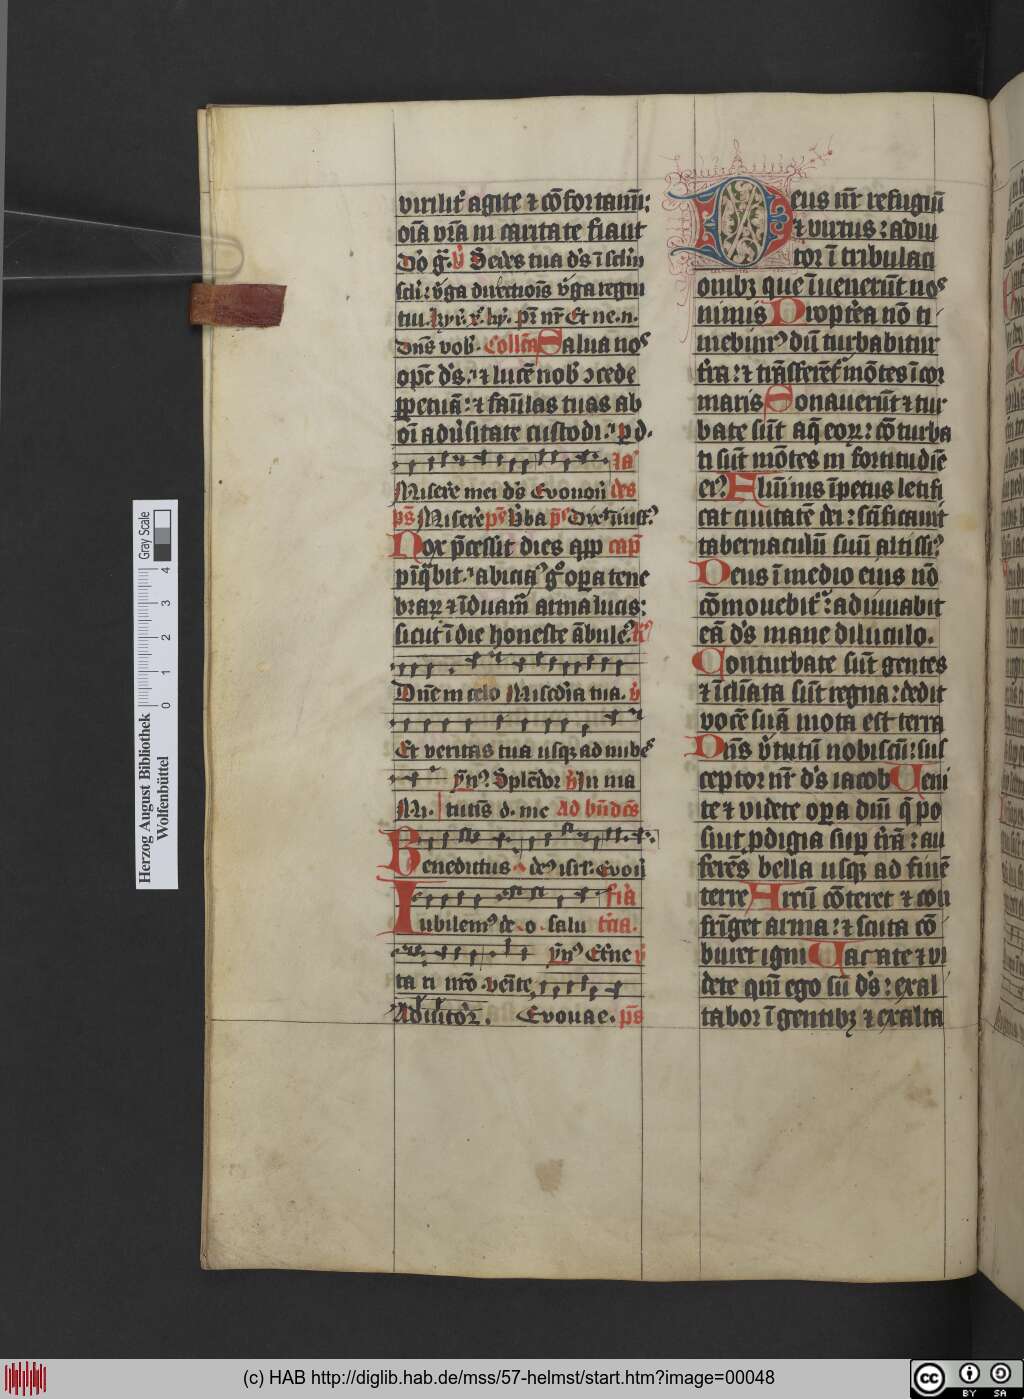 virilit᷑ agite ⁊ cōfortamī:
oīa vr̄a in caritate fiant
Dō gr̄. v̓ Sedes tua ds̄ ī sclm̄
scli: v̓ga directiōis v̓ga regni
tui. kyr̓. xp̄. ky. pr̄ nr̄ Et ne. n.
Dn̄s vob̓. Collēta Salua noˢ
op̄c ds̄. ⁊ lucē nob̓ ↄcede
ꝑpetuā: ⁊ fam̄las tuas ab
oī adu̓sitate custodi. ꝑ d.
Miserē mei ds̄ Evovon̄
ps̄ Miserē ps̄ v̓ba ps̄
Nox p̄cessit dies aūt app cap̄
pīqͣbit. abiciaꝰ gͦ oꝑa tene
braꝝ ⁊ īduam̄ arma lucis:
sicut ī die honeste ābulēꝰ
Dn̄e in celo Misc̄dīa tua. v̓
Et veritas tua usqꝫ ad nubes
ȳnꝰ. Splēdor v̓ In ma
Ni. tutīs d. me Ad bn̄dc̄s
Benedictus deꝰ isrl̄. Evon̄
fr̄ia
Iubilemꝰ de o salu tr̄cia.
ȳnꝰ Et̄ne v̓
ta ri nr̄o venīte
Adiutor. Evovae. ps̄
Deus nr̄ refugiū
⁊ virtus: adiu
tor ī tribulaci
onibꝫ que īuenerūt noˢ
nimis Propt̄ea nō ti
mebimꝰ dū turbabitur
t̄ra: ⁊ trāsferēt᷑ mōtes ī cor
maris Sonauerūt ⁊ tur
bate sūt aq̄ eoꝝ: cōturba
ti sūt mōtes in fortitudīe
eiꝰ Flūinis īpetus letifi
cat ciuitatē dei: scīficauit
tabernaculū suū altissiꝰ
Deus ī medio eius nō
cōmouebit᷑: adiuuabit
eā ds̄ mane diluculo.
Conturbate sūt gentes
⁊ īclīata sūt regna: dedit
vocē suā mota est terra
Dn̄s v̓tutū nobiscū: sus
ceptor nr̄ ds̄ iacob Ueni
te ⁊ videte oꝑa dn̄i q̄ po
suit ꝓdigia suꝑ t̄rā: au
ferēs bella usqꝫ ad finē
terre Arcū cōteret ⁊ con
frīget arma: ⁊ scuta cō
buret igni Uacate ⁊ vi
dete qm̄ ego sū ds̄: exal
tabor ī gentibꝫ ⁊ exalta
Herzog August Bibliothek
Wolfenbüttel
0 1 2 3 4
Gray Scale
(c) HAB http://diglib.hab.de/mss/57-helmst/start.htm?image=00048
cc BY SA